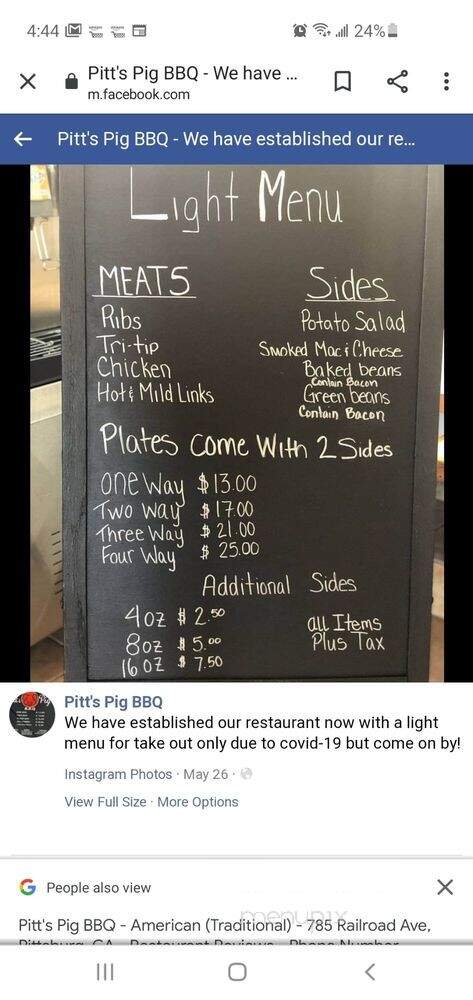 4:44 24%
Pitt's Pig BBQ - We have ...
m.facebook.com
Pitt's Pig BBQ - We have established our re...
Light Menu
MEATS
Ribs
Tri-tip
Chicken
Hot & Mild Links
Sides
Potato Salad
Smoked Mac & Cheese
Baked beans
Contain Bacon
Green beans
Contain Bacon
Plates Come With 2 Sides
One Way $13.00
Two Way $17.00
Three Way $21.00
Four Way $25.00
Additional Sides
4oz $2.50
8oz $5.00
16oz $7.50
all Items
Plus Tax
Pitt's Pig BBQ
We have established our restaurant now with a light
menu for take out only due to covid-19 but come on by!
Instagram Photos · May 26 ·
View Full Size · More Options
People also view
menupix
Pitt's Pig BBQ - American (Traditional) - 785 Railroad Ave,
Pittsburg, CA - Restaurant Reviews - Phone Number